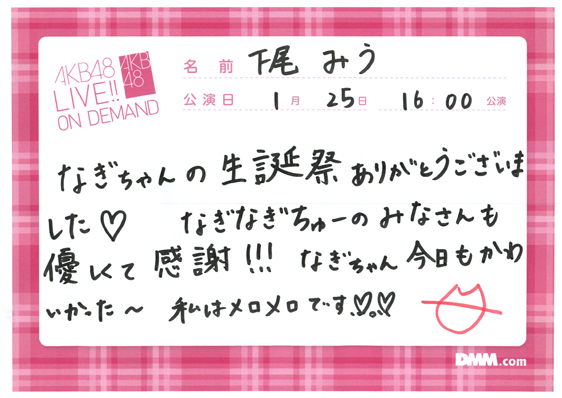 AKB48
LIVE!!
ON DEMAND
AKB
48
名前 下尾 みう
公演日 1月 25日 16:00 公演
なぎちゃんの 生誕祭 ありがとうございま
した♡ なぎなぎちゅーの みなさんも
優しくて 感謝!!! なぎちゃん 今日も かわ
いかった〜 私はメロメロです♡♡
DMM.com